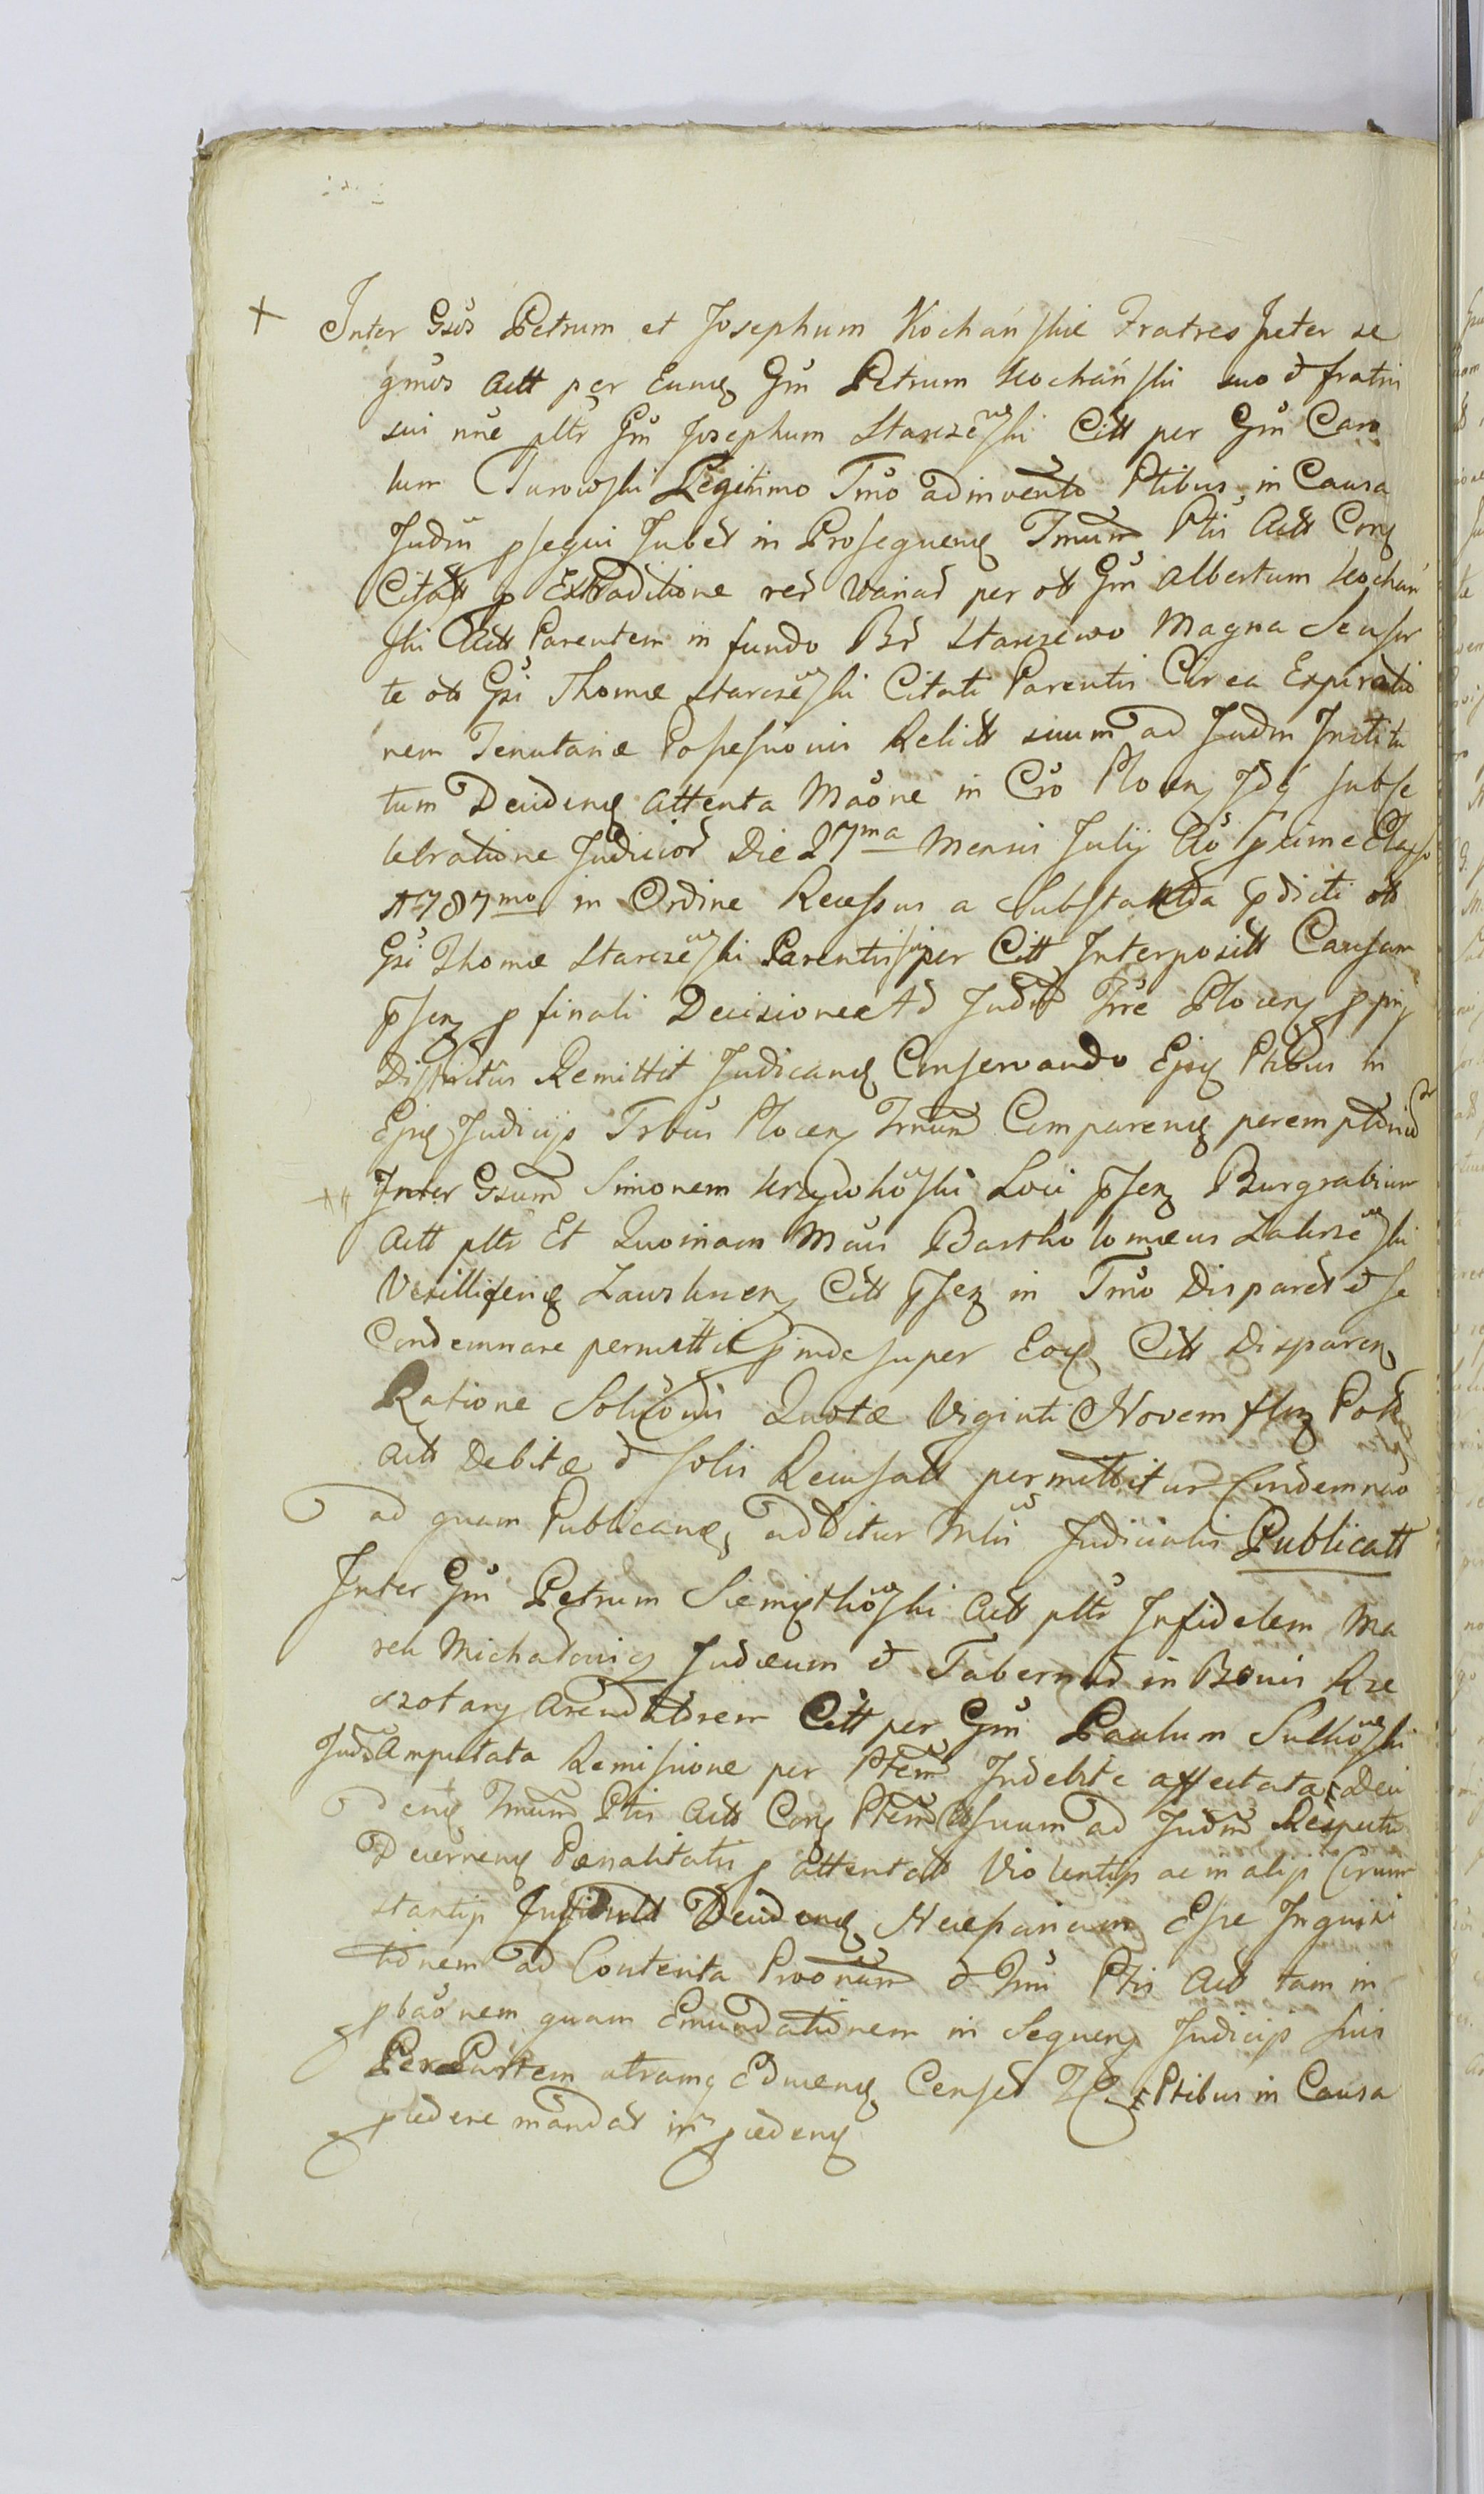 Inter Gsos Petrum et Josephum Kochański Fratres Inter se
gmos Actt per Eundę Gm Petrum Kochański suo & fratris
sui nne pltr Gm Josephum Starczewski Citt per Gm Caro
lum Turowski Legitimo Tmo adinvento Ptibus in Causa
Judm psequi Jubet in Prosequenę Tmum Ptis Actt Conę
Citatt p Extraditione rer variar per ott Gm Albertum Kochań
ski Actt Parentem in fundo Br Starczewo Magna
te ott Gsi Thomæ Starczewski Citati Parentis Circa Expiratio
nem Tenutariæ Possessionis Relictt suum ad Judm Institu
tum Deciden attenta Maone in Cso Plocen subse
lebratione Judicior Die 27ma Mensis Julij Ao Elapso
1787mo in Ordine Recessus a Substantia pdicti ott
Gsi Thomæ Starczewski Parentis sui per Citt Interpositt Causam
psen p finali Decisione Ad Judia Trre Plocen
Districtus Remittit Judicanę Conservando Ejsę Ptibus in
Ejsę Judicijs Trbus Plocen Tmum Comparenę peremptorium
Inter Gsum Simonem Krzywkowski Loci psen Burgrabium
Actt pltr Et Quoniam Mcus Bartholomæus Zakrzewski
Vexilliferię Zawskrzen Citt psen in Tmo Disparet & se
Condemnare permittit pinde super Eoę Citt Disparen
Ratione Soluconis Quotæ Viginti Novem flen Pol
Actt Debitæ & solis Recusatt permittitur Condemnao
ad quam Publicanę additur Mlis Judicialis Publicatt
Inter Gm Petrum Siemiątkowski Actt pltr Infidelem Ma
rek Michałowicz Judæum & Tabernar in Bonis Rze
czotary Arendatorem Citt per Gm Paulum Sulkowski
Judm Amputata Remissione per Ptem Indebite affectata Deci
denę Tmum Ptis Actt Conę Ptem Citt suum ad Judm Respectu
Decernenę Pœnalitatis p attentatt Violentijs ac in alijs Circum
stantijs Decidenę Necessariam Esse Inquisi
tionem ad Contenta Proonum & Tmi Ptis Actt tam in
pbaonem quam Emundationem in Sequen Judicijs suis
Per Partem utramq Educenę Censet Ptibus in Causa
pcedere mandat in pcedenę